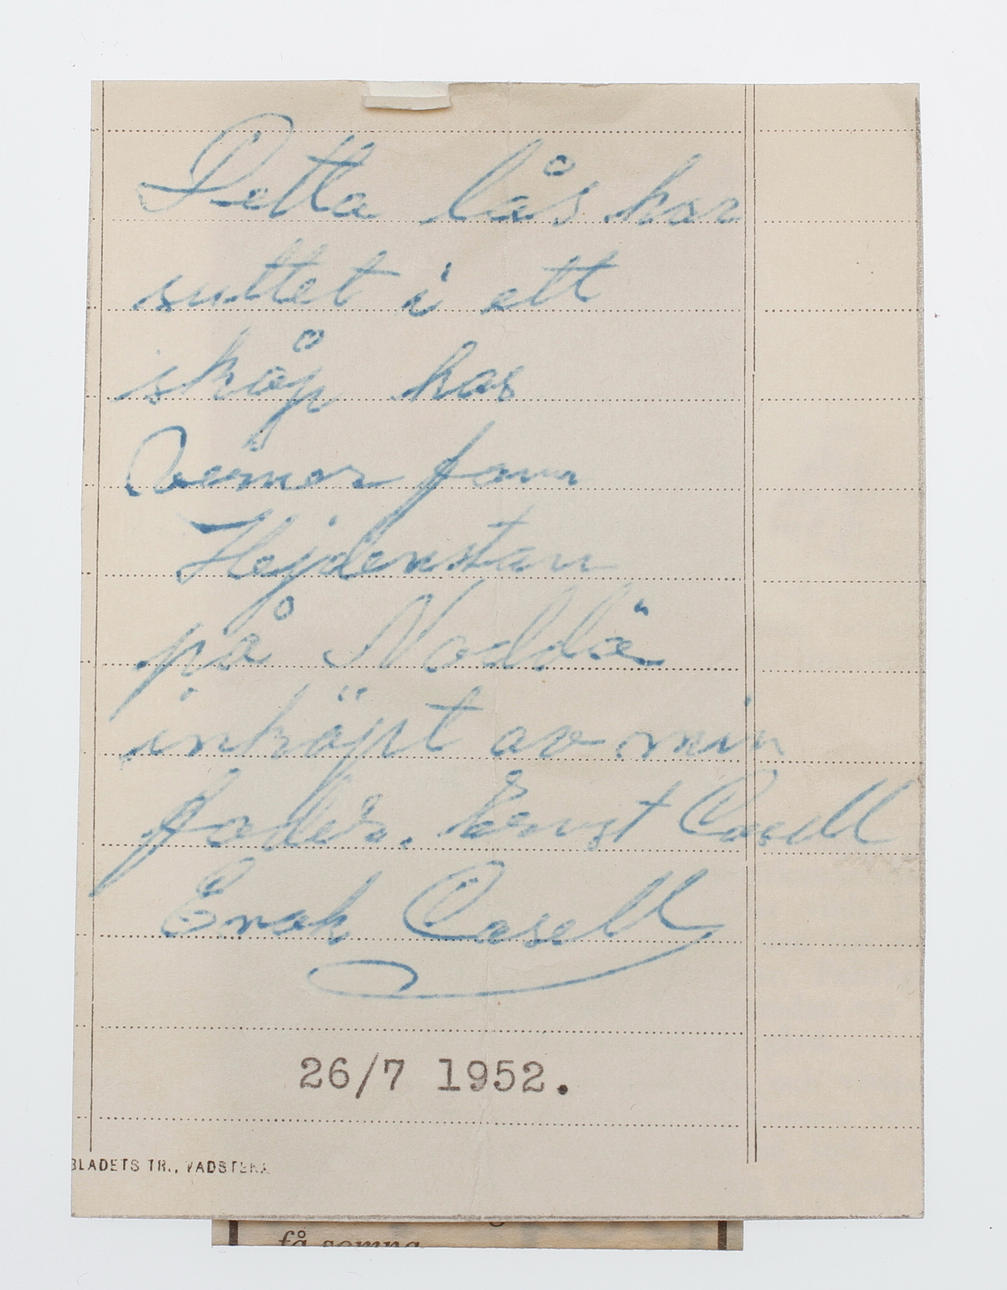 Detta lås har
suttet i ett
skåp hos
Verner fon
Hejdenstam
på Noddö
inköpt av min
fader. Ernst Casell
Casell
26/7 1952.
BLADETS TR., VADSTENA
få somna